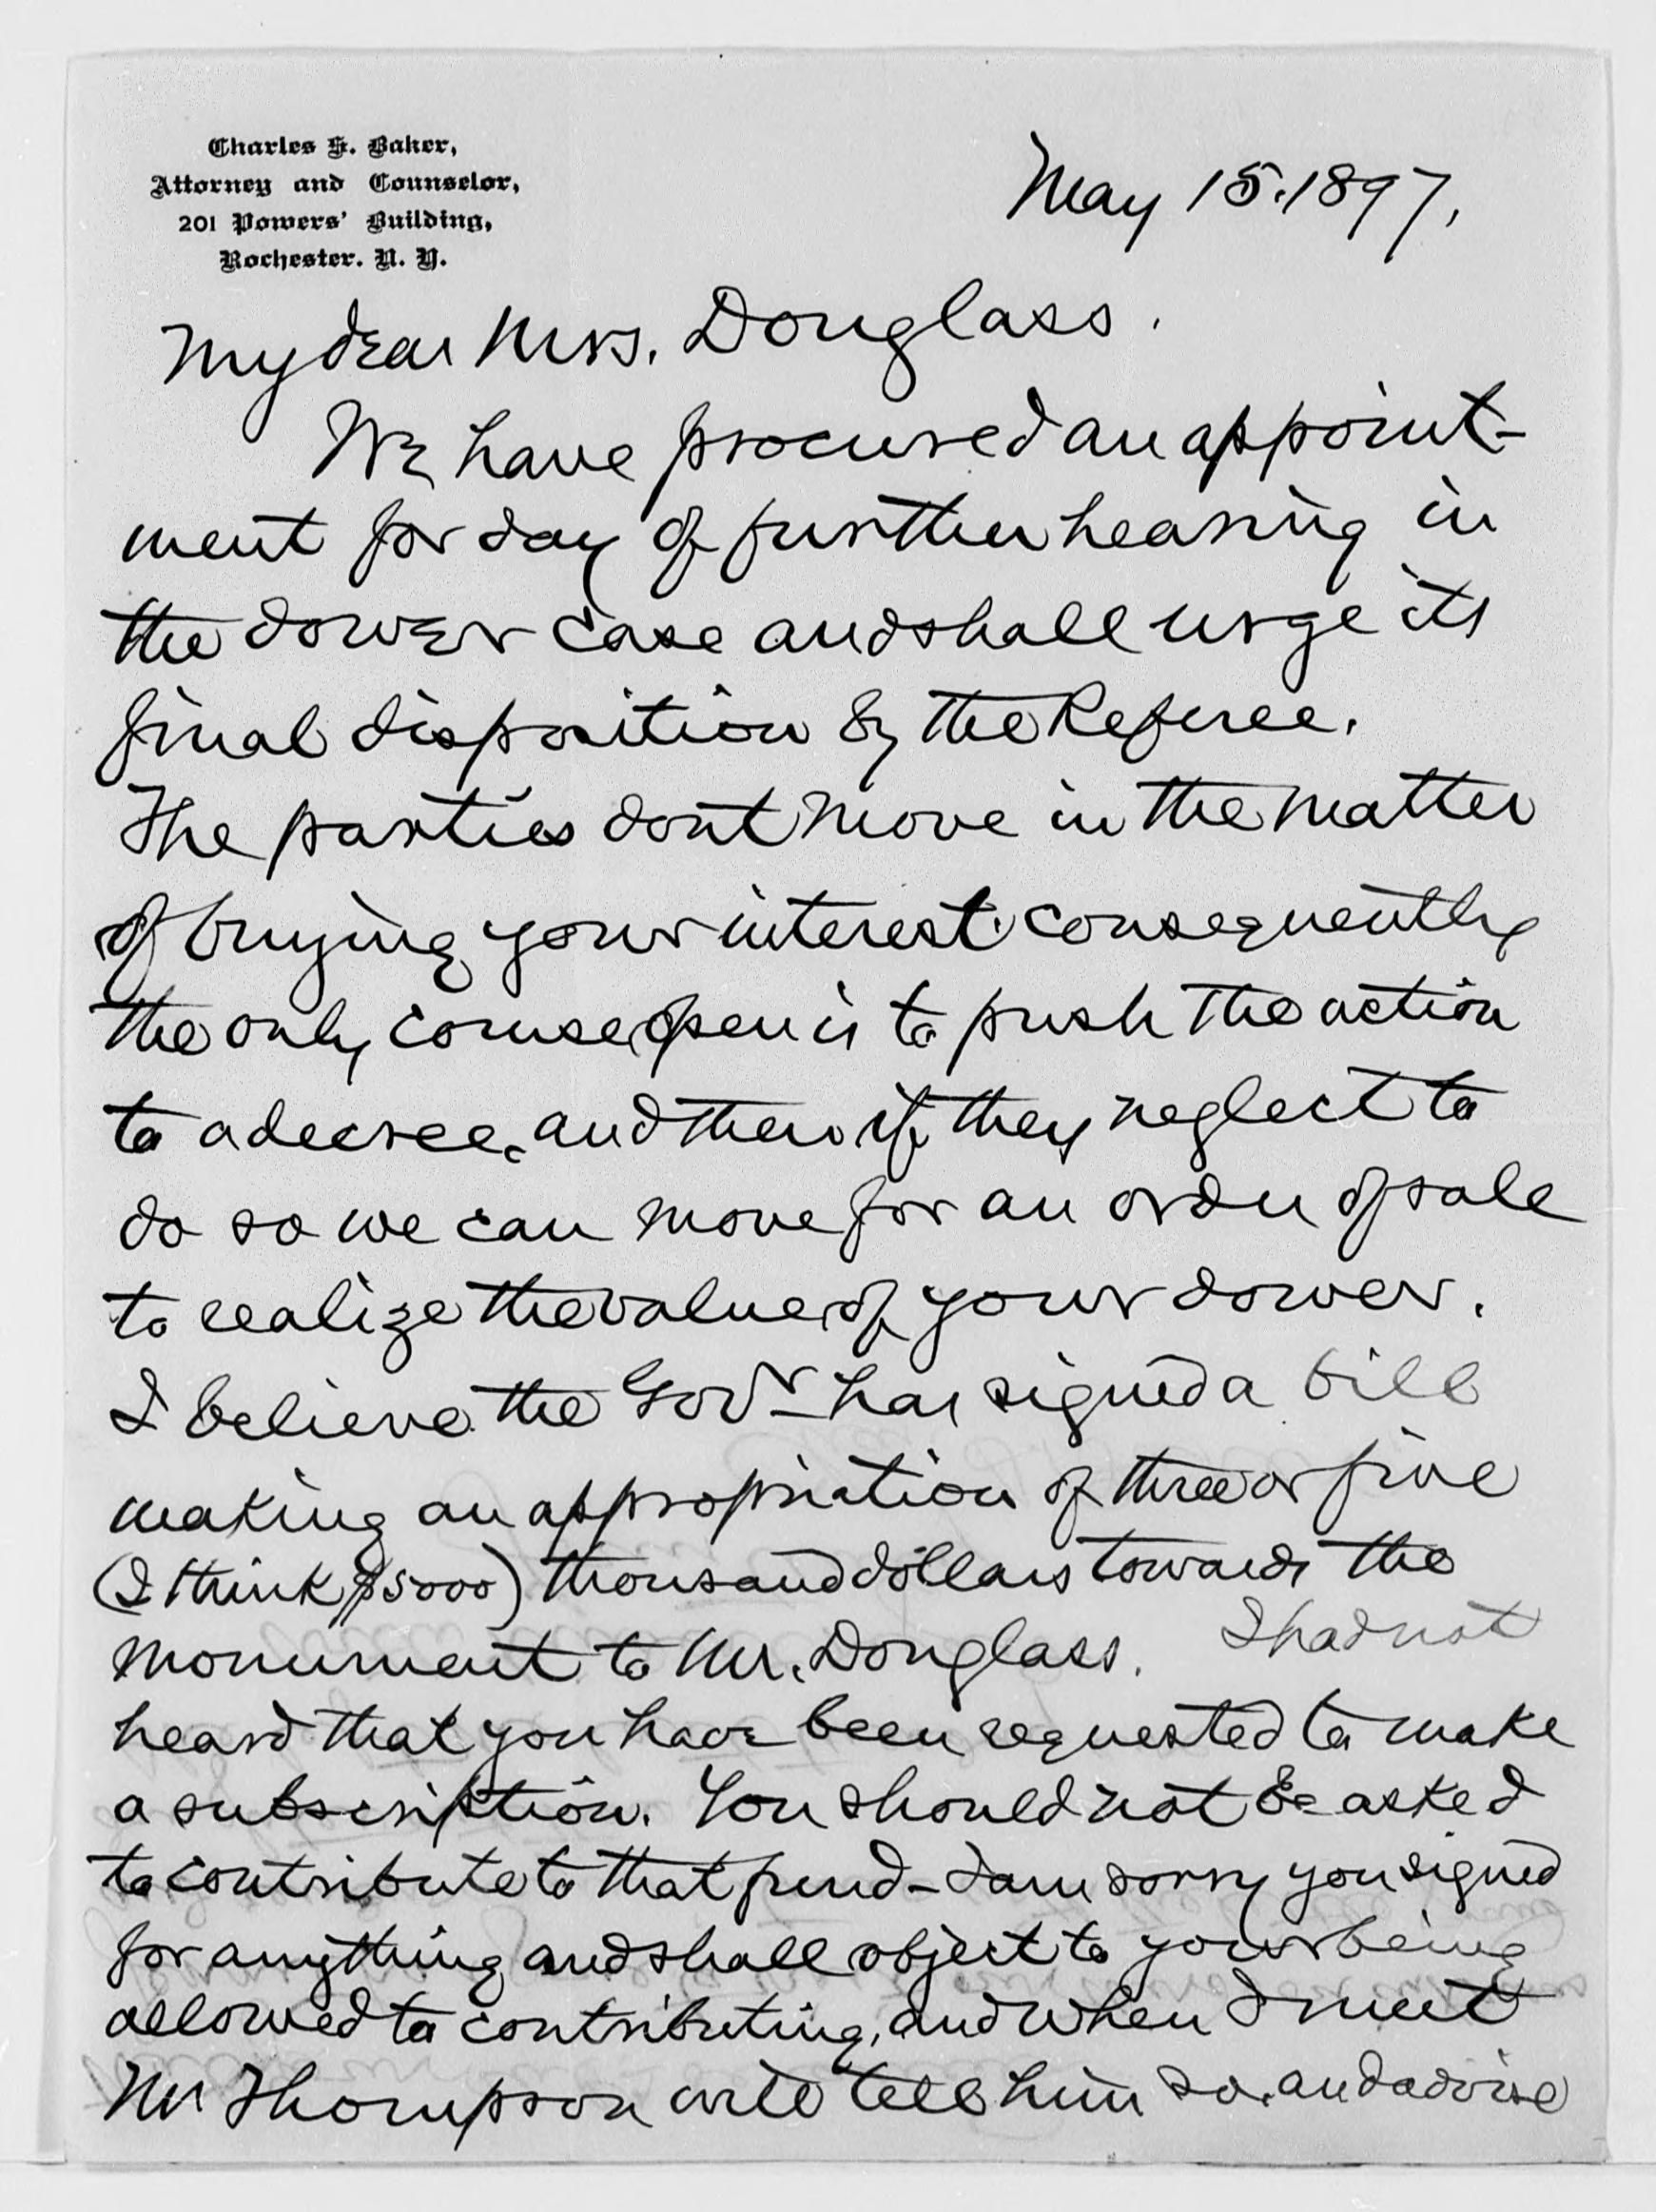 Charles S. Baker,
Attorney and Counselor,
201 Powers' Building,
Rochester. N. Y.
May 15. 1897,
My dear Mrs. Douglass.
We have procured an appoint-
ment for day of further hearing in
the dower case and shall urge its
final disposition by the Referee.
The parties dont move in the matter
of buying your interest. consequently
the only course open is to push the action
to a decree. and then if they neglect to
do so we can move for an order of sale
to realize the value of your dower.
I believe the Govr has signed a bill
making an appropriation of three or five
(I think $5000) thousand dollars towards the
monument to Mr. Douglass. I had not
heard that you have been requested to make
a subscription. You should not be asked
to contribute to that fund - I am sorry you signed
for anything and shall object to your being
allowed to contributing, and when I meet
Mr Thompson will tell him so. and advise